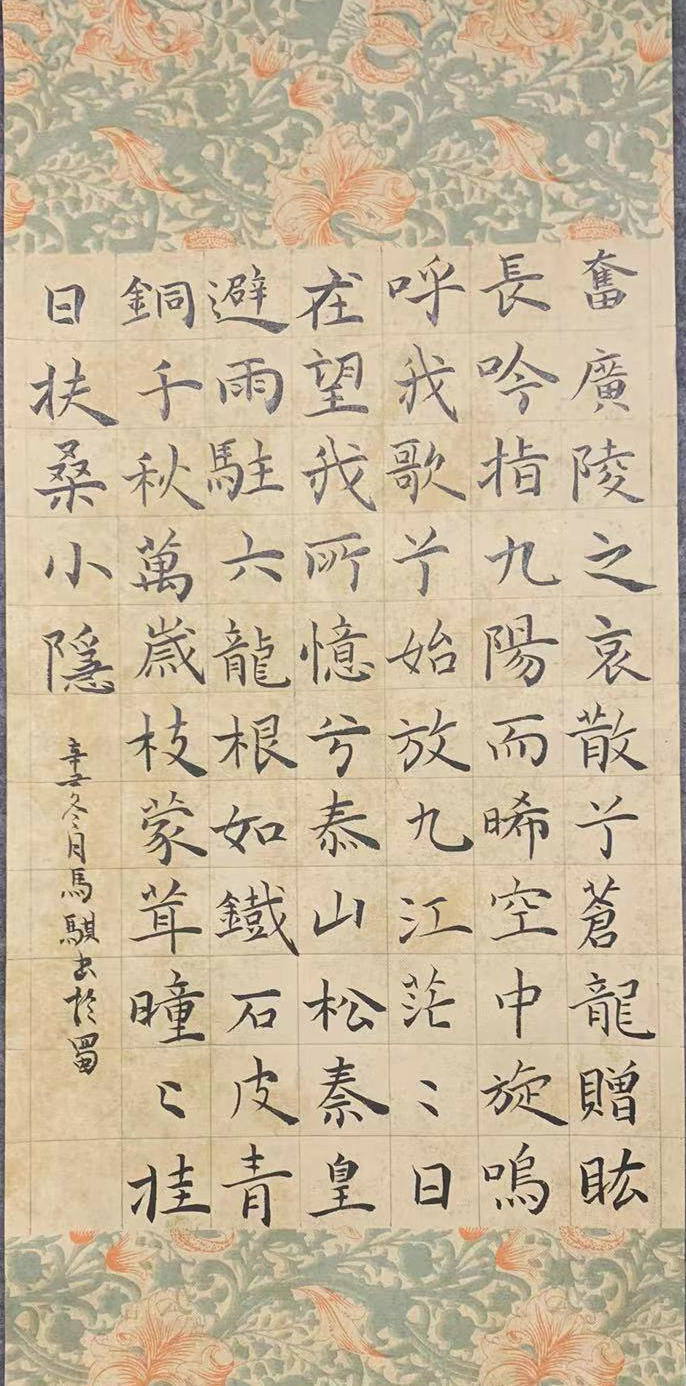 奮廣陵之哀散兮蒼龍贈
長吟指九陽而晞空中旋嗚
呼我歌兮始放九江茫〻日
在望我所憶兮泰山松秦皇
避雨駐六龍根如鐵石皮青
銅千秋萬歲枝蒙茸曈〻挂
日扶桑小隱
辛丑冬月馬騏书於蜀